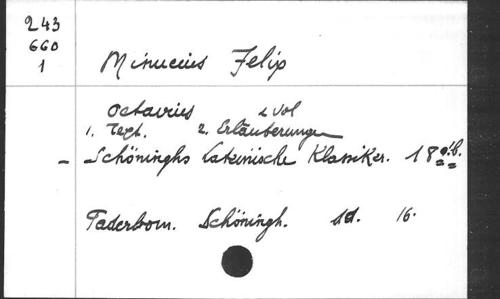 243
660
1
Minucius Felix
Octavius 2 Vol
1. Text. 2. Erläuterungen
- Schöninghs Lateinische Klassiker. 18
Paderborn. Schöningh. sd. 16.